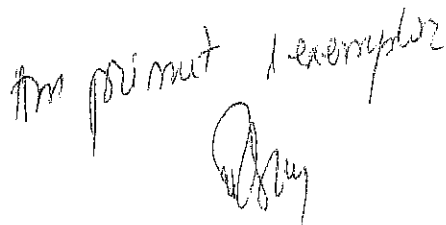 Am primit 1 exemplar